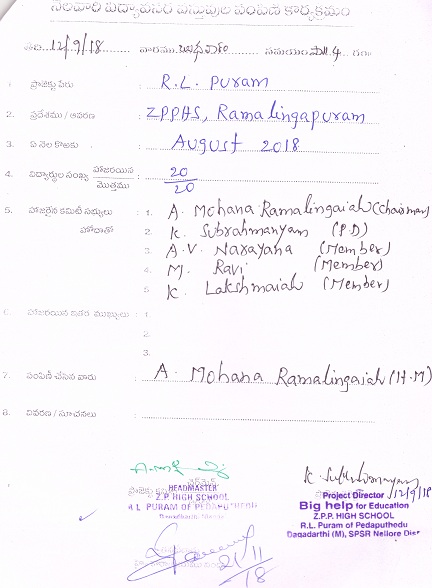 నెలవారీ విద్యావసర వస్తువుల పంపిణీ కార్యక్రమం
తేది 12/9/18 వారము బుధవారం సమయం సా॥ 4 గం॥
1. ప్రాజెక్టు పేరు : R.L. Puram
2. ప్రదేశము / ఆవరణ : ZPPHS, Ramalingapuram
3. ఏ నెల కొరకు : August 2018
4. విద్యార్థుల సంఖ్య హాజరయిన / మొత్తము : 20 / 20
5. హాజరైన కమిటీ సభ్యులు : 1. A. Mohana Ramalingaiah (Chairman)
హోదాతో 2. K. Subrahmanyam (P.D)
3. A.V. Narayana (Member)
4. M. Ravi (Member)
5. K. Lakshmaiah (Member)
6. హాజరయిన ఇతర ముఖ్యులు : 1.
2.
3.
7. పంపిణీ చేసిన వారు : A. Mohana Ramalingaiah (H.M)
8. వివరణ / సూచనలు :
HEADMASTER
Z.P. HIGH SCHOOL
R.L PURAM OF PEDAPUTHEDU
K. Subrahmanyam
Project Director 12/9/18
Big help for Education
Z.P.P. HIGH SCHOOL
R.L. Puram of Pedaputhedu
Dagadarthi (M), SPSR Nellore Dist
21/11/18